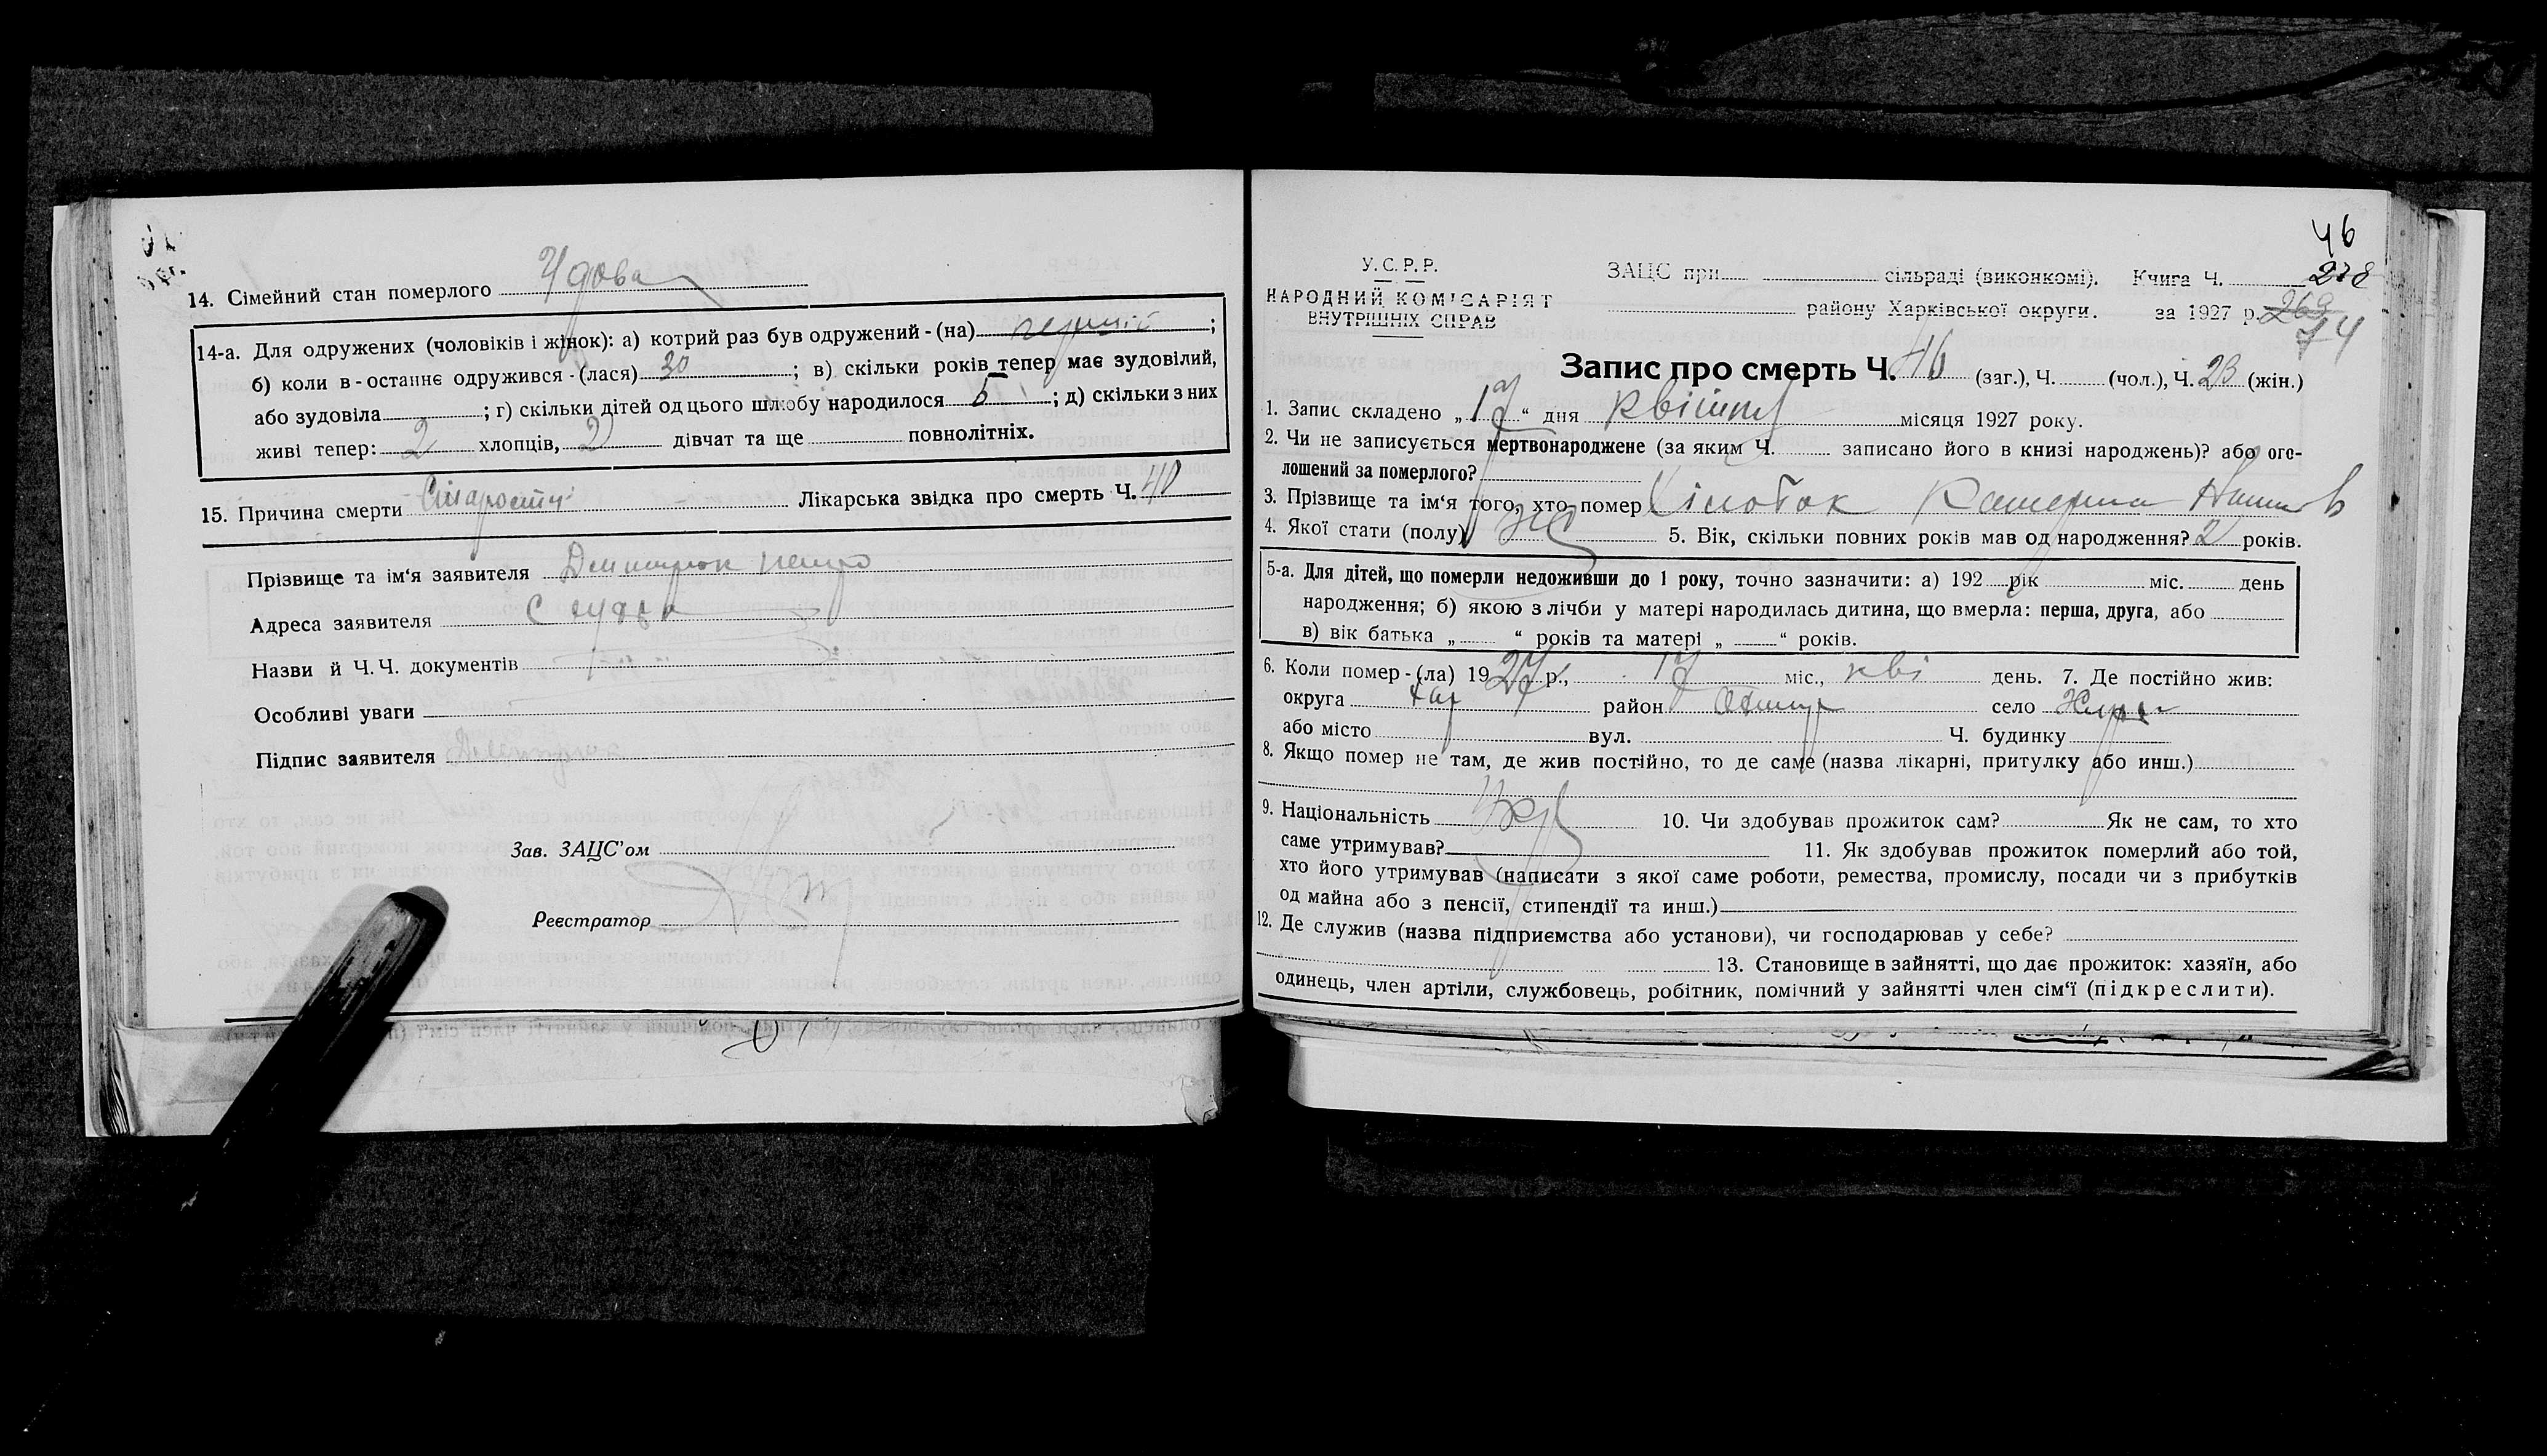 14. Сімейний стан померлого Удова
14-а. Для одружених (чоловіків і жінок): а) котрий раз був одружений - (на) ;
б) коли в-останнє одружився - (лася) 30 ; в) скільки років тепер має зудовілий,
або зудовіла ; г) скільки дітей од цього шлюбу народилося 5 ; д) скільки з них
живі тепер: 2 хлопців, 2 дівчат та ще повнолітніх.
15. Причина смерти Старости Лікарська звідка про смерть Ч. 40
Прізвище та ім'я заявителя
Адреса заявителя
Назви й Ч. Ч. документів
Особливі уваги
Підпис заявителя
Зав. ЗАЦС'ом
Реєстратор
46
У. С. Р. Р.
НАРОДНИЙ КОМІСАРІЯТ
ВНУТРІШНІХ СПРАВ
ЗАЦС при сільраді (виконкомі). Книга Ч.
району Харківської округи. за 1927 р. 269
74
Запис про смерть Ч. 46 (заг.), Ч. (чол.), Ч. 23 (жін.)
1. Запис складено „ 17 “ дня квітня місяця 1927 року.
2. Чи не записується мертвонароджене (за яким Ч. записано його в книзі народжень)? або ого-
лошений за померлого?
3. Прізвище та ім'я того, хто помер Катерина
4. Якої стати (полу) 5. Вік, скільки повних років мав од народження? років.
5-а. Для дітей, що померли недоживши до 1 року, точно зазначити: а) 192 рік міс. день
народження; б) якою з лічби у матері народилась дитина, що вмерла: перша, друга, або
в) вік батька „ “ років та матері „ “ років.
6. Коли помер - (ла) 1927 р., 17 міс., кві день. 7. Де постійно жив:
округа Хар район село
або місто вул. Ч. будинку
8. Якщо помер не там, де жив постійно, то де саме (назва лікарні, притулку або инш.)
9. Національність Укр 10. Чи здобував прожиток сам? Як не сам, то хто
саме утримував? 11. Як здобував прожиток померлий або той,
хто його утримував (написати з якої саме роботи, ремества, промислу, посади чи з прибутків
од майна або з пенсії, стипендії та инш.)
12. Де служив (назва підприємства або установи), чи господарював у себе?
13. Становище в зайнятті, що дає прожиток: хазяїн, або
одинець, член артіли, службовець, робітник, помічний у зайнятті член сім'ї (підкреслити).